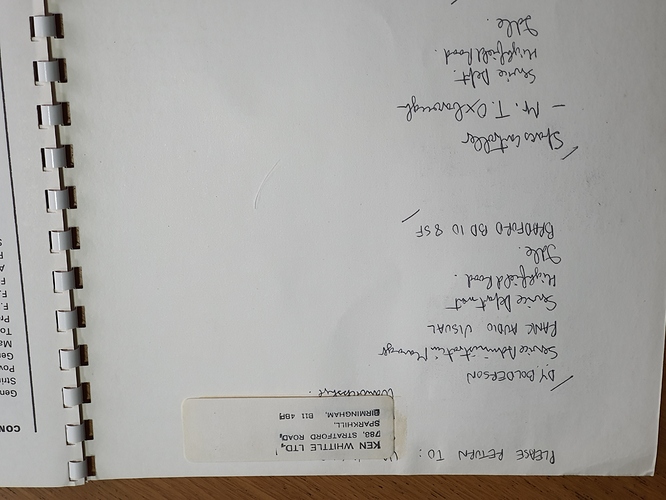 PLEASE RETURN TO:
KEN WHITTLE LTD.,
STRATFORD ROAD,
SPARKHILL.
BIRMINGHAM, B11
D.Y. BOLDERSON
Service Administration Manager
RANK AUDIO VISUAL
Service Department
Highfield Road.
Idle.
BRADFORD BD 10 8SF
Stores Controller
— Mr. T. Oxborough
Service Dept.
Highfield Road.
Idle.
CON
Gen
Strin
Pow
Gen
Ma
To
Pri
F.
F.
F
A
F